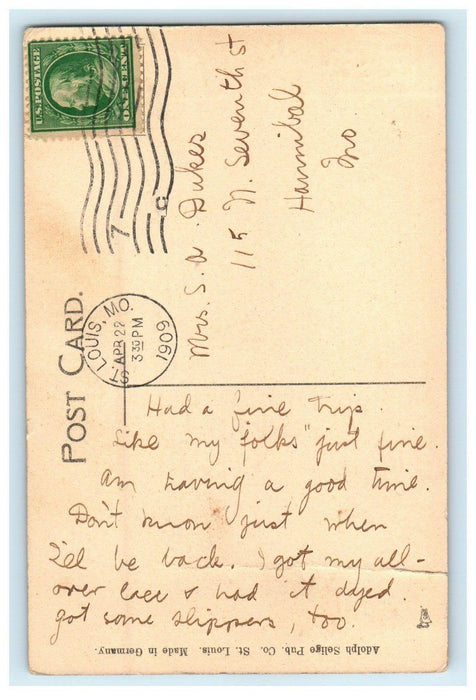 U.S. POSTAGE
ONE CENT
ST. LOUIS, MO.
APR 29
3 30 PM
1909
7
POST CARD.
Mrs. S. A Dukes
115 N. Seventh St
Hannibal
Mo
Had a fine trip.
Like my "folks" just fine.
Am having a good time.
Don't know just when
I'll be back. I got my all-
over lace & had it dyed.
got some slippers, too.
Adolph Selige Pub. Co. St. Louis. Made in Germany.